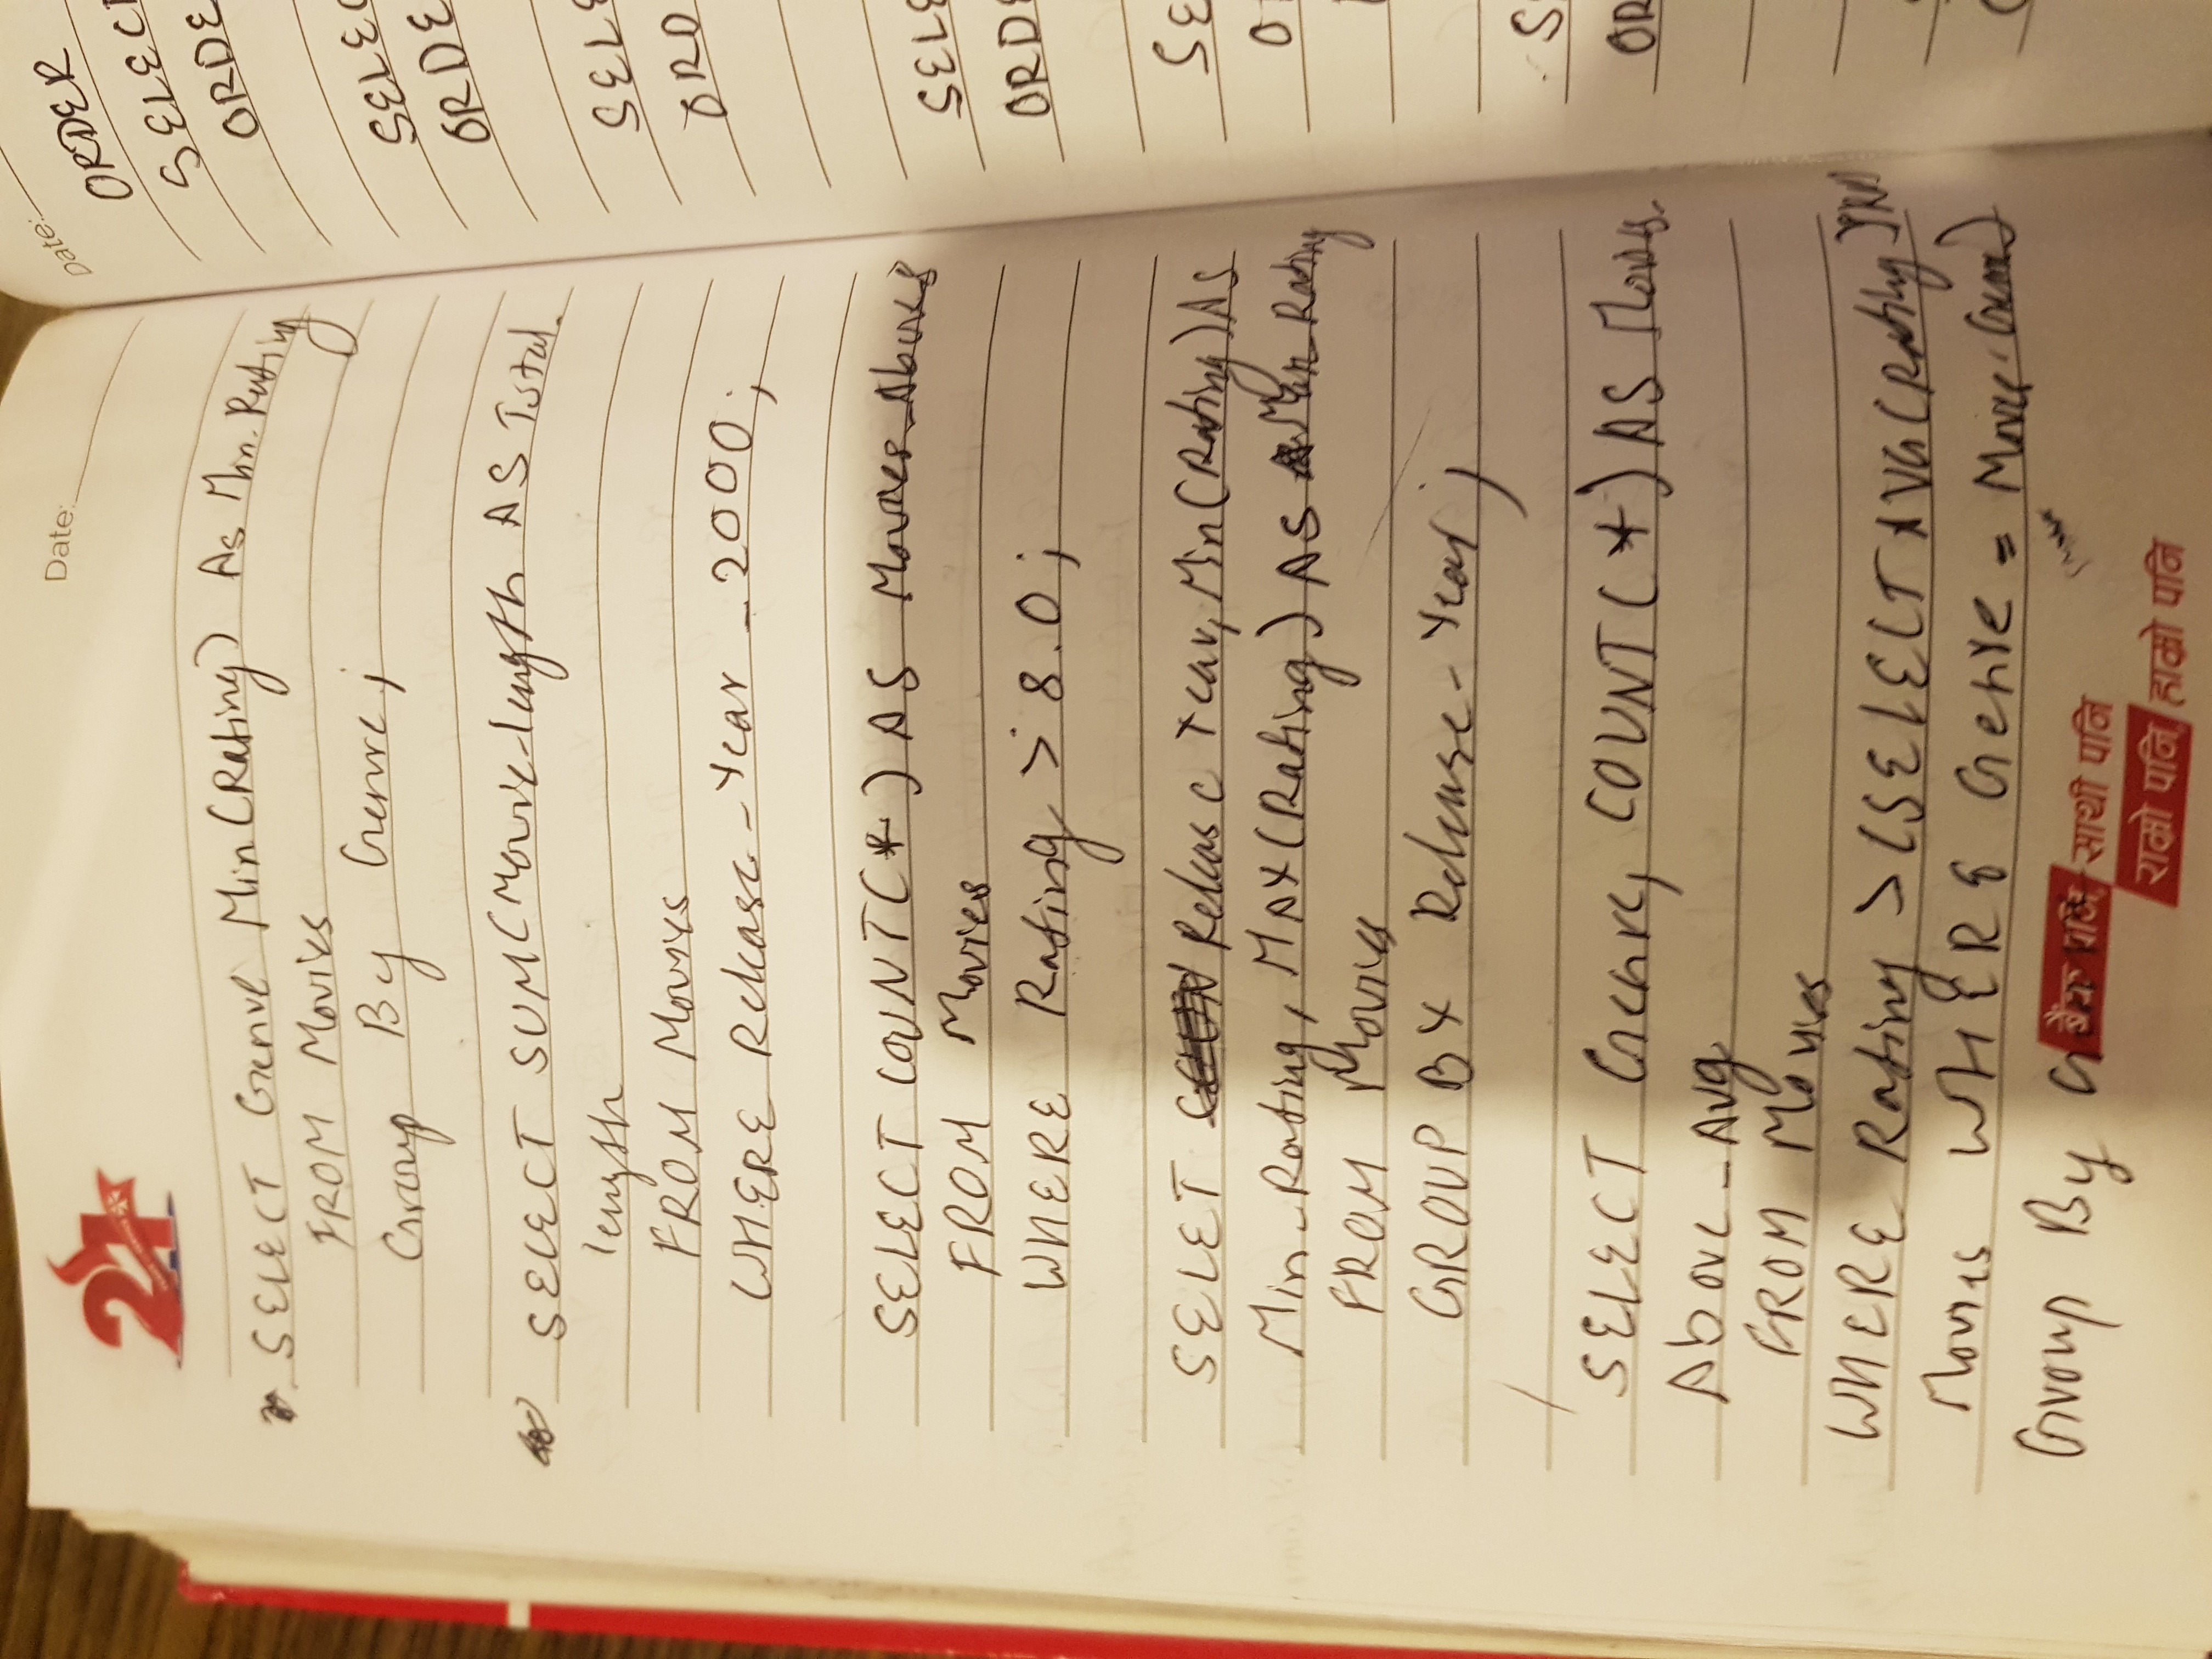 21
Date:
SELECT Genre Min(Rating) As Min-Rating
FROM Movies
Group By Genre;
SELECT SUM(Movie-length AS Total-
length
FROM Movies
WHERE Release-Year - 2000;
SELECT COUNT(*) AS Movies-Above8
FROM Movies
WHERE Rating > 8.0;
SELET Release Year, Min(Rating) AS
Min-Rating, MAX(Rating) AS Max-Rating
FROM Movies
GROUP BY Release-Year;
SELECT Genre, COUNT(*) AS Movies-
Above-Avg
FROM Movies
WHERE Rating > (SELECT AVG(Rating)
Movies WHERE Genre = Movie.Genre)
Group By Genre
बैंक पनि साथी पनि
राम्रो पनि हाम्रो पनि
Date:
ORDER
SELECT
ORDE
SELEC
ORDE
SELE
ORD
SELE
ORDE
SE
O
S
OR